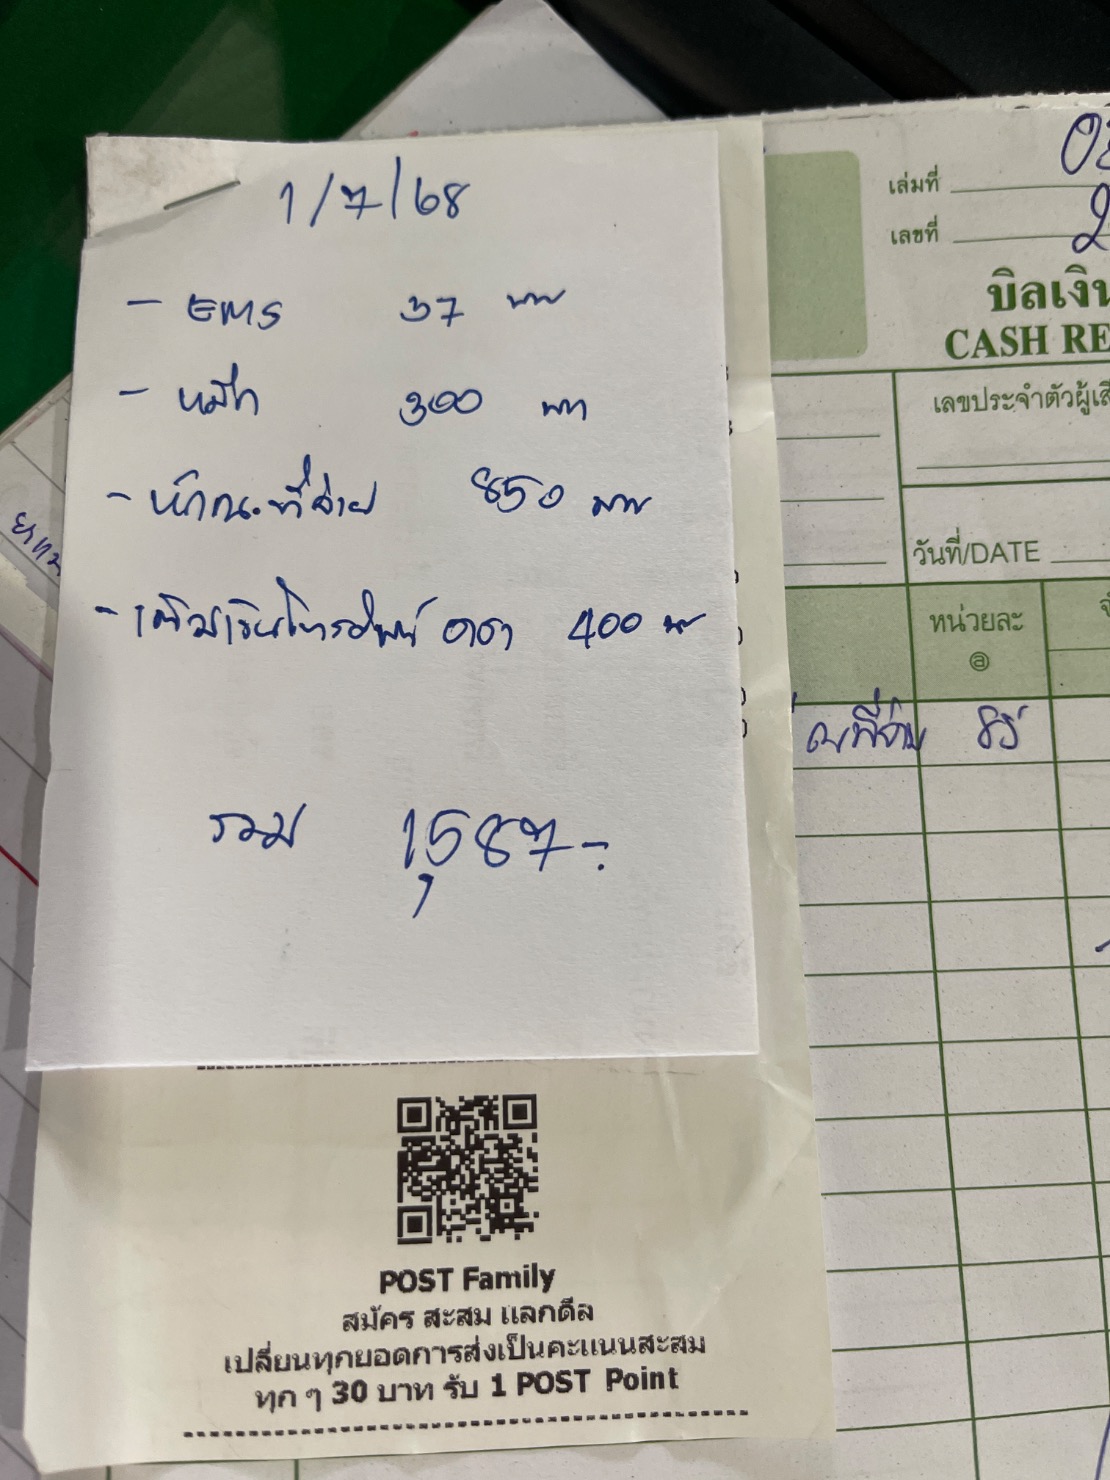 1/7/68
- EMS 37 บาท
- หมึก 300 บาท
- หัก ณ ที่จ่าย 850 บาท
- เติมเงินโทรศัพท์ 400 บ
รวม 1,587-.
POST Family
สมัคร สะสม แลกดีล
เปลี่ยนทุกยอดการส่งเป็นคะแนนสะสม
ทุก ๆ 30 บาท รับ 1 POST Point
เล่มที่
เลขที่ 2
บิลเงิน
CASH RE
เลขประจำตัวผู้เสี
วันที่/DATE
หน่วยละ
@
ณ ที่จ่าย